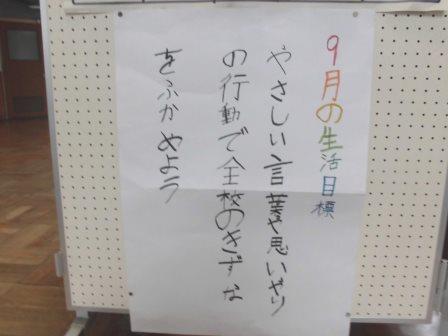 9月の生活目標
やさしい言葉や思いやり
の行動で全校のきずな
をふかめよう